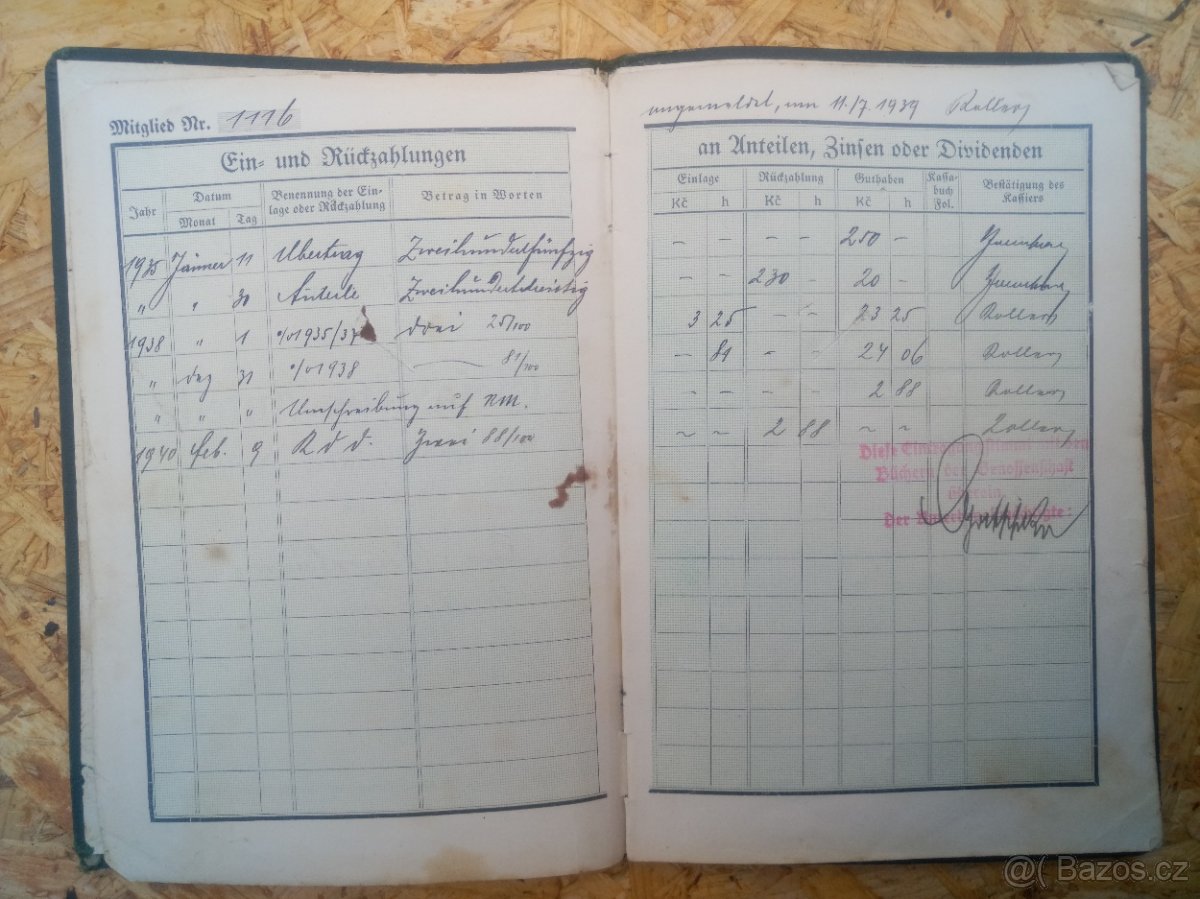 Mitglied Nr. 1116
Ein- und Rückzahlungen
Jahr Datum Monat Tag Benennung der Ein- lage oder Rückzahlung Betrag in Worten
1935 Jänner 11 Übertrag Zweihundertfünfzig
" " 30 Anteile Zweihundertdreissig
1938 " 1 %1935/37 drei 25/100
" dez 31 %1938 — 81/100
" " " Umschreibung auf RM.
1940 feb. 9 R d d. Zwei 88/100
angemeldet, am 11./7. 1939
an Anteilen, Zinsen oder Dividenden
Einlage Kč h Rückzahlung Kč h Guthaben Kč h Kassa- buch Fol. Bestätigung des Kassiers
– – – – 250 –
– – 230 – 20 –
3 25 – – 23 25
– 81 – – 24 06
2 88
– – 2 88 – –
Diese Eintragung stimmt mit den
Büchern der Genossenschaft
überein
Der